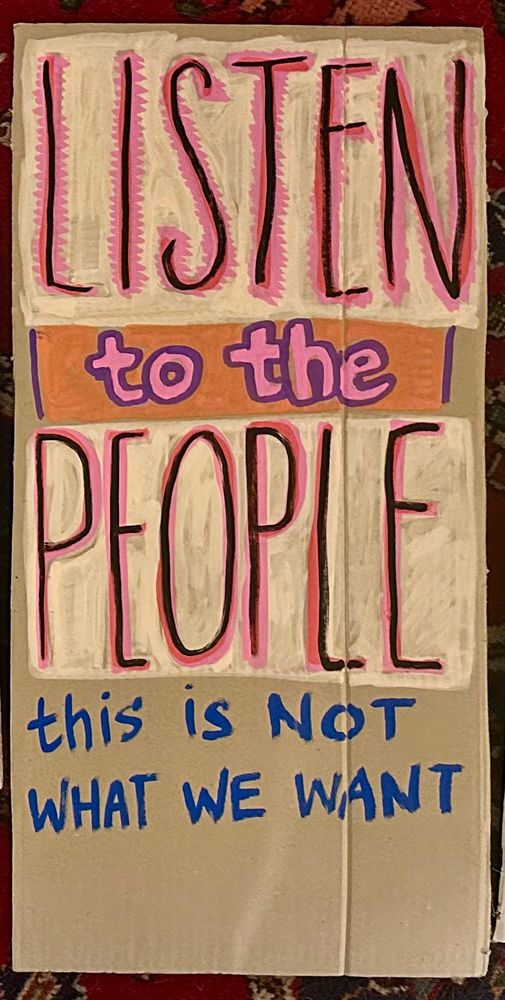 LISTEN
to the
PEOPLE
this is NOT
WHAT WE WANT